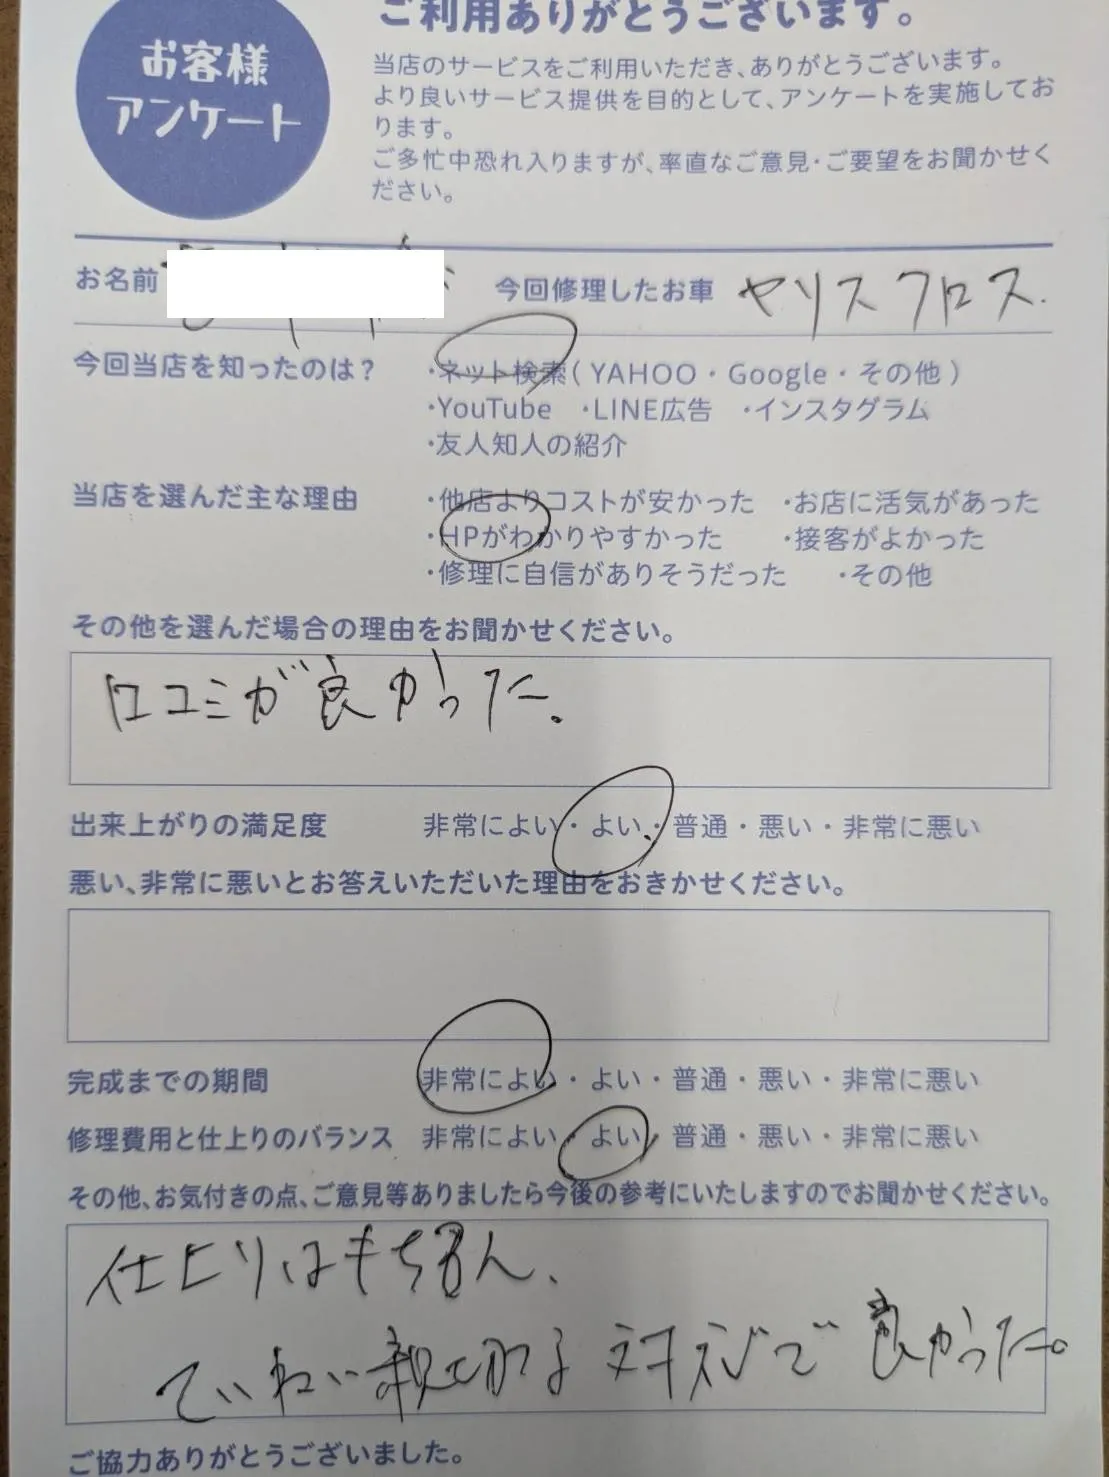 ご利用ありがとうございます。
お客様
アンケート
当店のサービスをご利用いただき、ありがとうございます。
より良いサービス提供を目的として、アンケートを実施してお
ります。
ご多忙中恐れ入りますが、率直なご意見・ご要望をお聞かせく
ださい。
お名前 今回修理したお車 ヤリスクロス.
今回当店を知ったのは? ・ネット検索(YAHOO・Google・その他)
・YouTube ・LINE広告 ・インスタグラム
・友人知人の紹介
当店を選んだ主な理由 ・他店よりコストが安かった ・お店に活気があった
・HPがわかりやすかった ・接客がよかった
・修理に自信がありそうだった ・その他
その他を選んだ場合の理由をお聞かせください。
口コミが良かった。
出来上がりの満足度 非常によい・よい・普通・悪い・非常に悪い
悪い、非常に悪いとお答えいただいた理由をおきかせください。
完成までの期間 非常によい・よい・普通・悪い・非常に悪い
修理費用と仕上りのバランス 非常によい・よい・普通・悪い・非常に悪い
その他、お気付きの点、ご意見等ありましたら今後の参考にいたしますのでお聞かせください。
仕上りはもちろん、
ていねい親切な対応で良かった。
ご協力ありがとうございました。